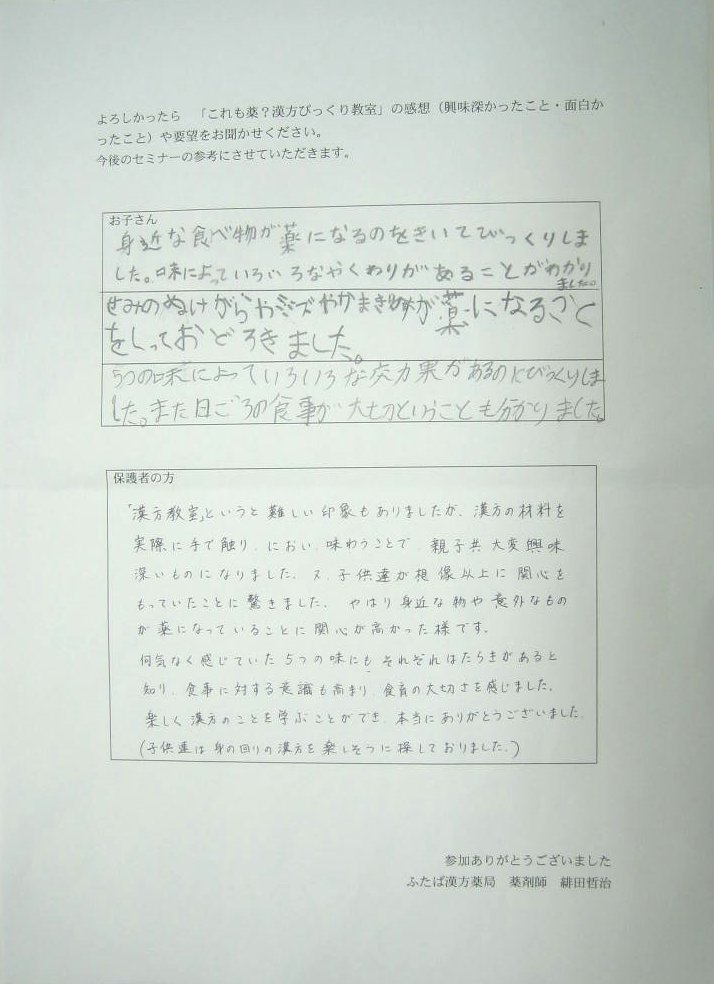 よろしかったら　「これも薬？漢方びっくり教室」の感想（興味深かったこと・面白か
ったこと）や要望をお聞かせください。
今後のセミナーの参考にさせていただきます。
お子さん
身近な食べ物が薬になるのをきいてびっくりしま
した。味によっていろいろなやくわりがあることがわかり
ました。
せみのぬけがらやミミズやかまきりが薬になること
をしっておどろきました。
5つの味によっていろいろな効果があるのにびっくりしま
した。また日ごろの食事が大切ということも分かりました。
保護者の方
「漢方教室」というと難しい印象もありましたが、漢方の材料を
実際に手で触り、におい、味わうことで、親子共大変興味
深いものになりました。又、子供達が想像以上に関心を
もっていたことに驚きました。やはり身近な物や意外なもの
が薬になっていることに関心が高かった様です。
何気なく感じていた5つの味にもそれぞれはたらきがあると
知り、食事に対する意識も高まり、食育の大切さを感じました。
楽しく漢方のことを学ぶことができ、本当にありがとうございました
（子供達は身の回りの漢方を楽しそうに探しておりました。）
参加ありがとうございました
ふたば漢方薬局　薬剤師　緋田哲治